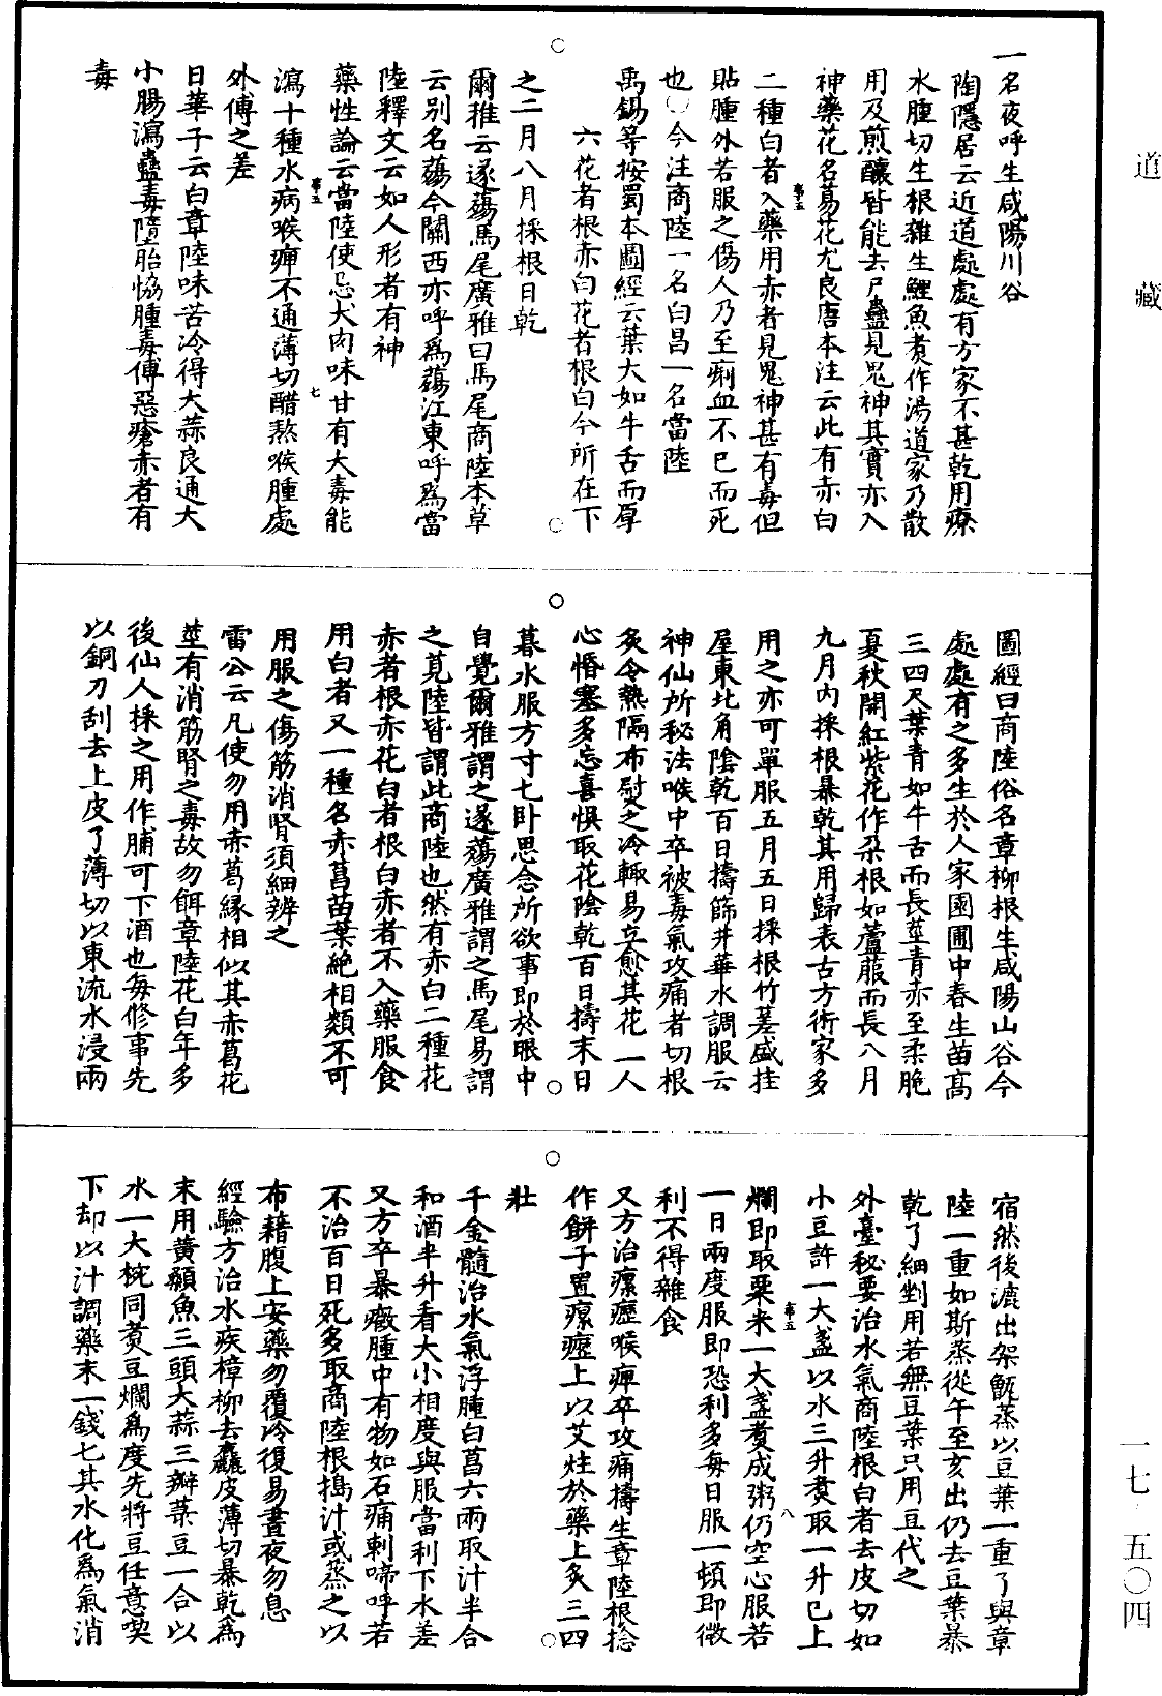 道藏
一七·五〇四
一名夜呼生咸陽川谷
陶隱居云近道處處有方家不甚乾用療
水腫切生根雜生鯉魚煑作湯道家乃散
用及煎釀皆能去尸蠱見鬼神其實亦入
神藥花名䓪花尤良唐本注云此有赤白
二種白者入藥用赤者見鬼神甚有毒但
貼腫外若服之傷人乃至痢血不已而死
也〇今注商陸一名白昌一名當陸
禹錫等按蜀本圖經云葉大如牛舌而厚
六花者根赤白花者根白今所在下
之二月八月採根日乾
爾雅云蓫薚馬尾廣雅曰馬尾商陸本草
云别名薚今關西亦呼爲薚江東呼爲當
陸釋文云如人形者有神
藥性論云當陸使忌犬肉味甘有大毒能
七
瀉十種水病喉痹不通薄切醋熬喉腫處
外傅之差
日華子云白章陸味苦冷得大蒜良通大
小腸瀉蠱毒墮胎㥘腫毒傅惡瘡赤者有
毒
圖經曰商陸俗名章柳根生咸陽山谷今
處處有之多生於人家園圃中春生苗高
三四尺葉青如牛舌而長莖青赤至柔脆
夏秋開紅紫花作朶根如蘆菔而長八月
九月内採根暴乾其用歸表古方術家多
用之亦可單服五月五日採根竹䔮盛挂
屋東北角陰乾百日擣篩井華水調服云
神仙所秘法喉中卒被毒氣攻痛者切根
炙令熱隔布熨之冷輒易立愈其花一人
心惛塞多忘喜悞取花陰乾百日擣末日
暮水服方寸七卧思念所欲事即於眼中
自覺爾雅謂之蓫薚廣雅謂之馬尾易謂
之莧陸皆謂此商陸也然有赤白二種花
赤者根赤花白者根白赤者不入藥服食
用白者又一種名赤菖苗葉絶相類不可
用服之傷筋消腎須細辨之
雷公云凡使勿用赤葛緣相似其赤葛花
莖有消筋腎之毒故勿餌章陸花白年多
後仙人採之用作脯可下酒也每修事先
以銅刀刮去上皮了薄切以東流水浸兩
宿然後漉出架甑蒸以豆葉一重了與章
陸一重如斯蒸從午至亥出仍去豆葉暴
乾了細剉用若無豆葉只用豆代之
外臺秘要治水氣商陸根白者去皮切如
小豆許一大盞以水三升煑取一升已上
爛即取粟米一大盞煑成粥仍空心服若
八
一日兩度服即恐利多每日服一頓即微
利不得雜食
又方治瘰癧喉痹卒攻痛擣生章陸根捻
作餅子置瘰癧上以艾炷於藥上炙三四
壯
千金髓治水氣浮腫白菖六兩取汁半合
和酒半升看大小相度與服當利下水差
又方卒暴癥腫中有物如石痛刺啼呼若
不治百日死多取商陸根搗汁或蒸之以
布藉腹上安藥勿覆冷復易晝夜勿息
經驗方治水疾樟柳去麤皮薄切暴乾爲
末用黃顙魚三頭大蒜三瓣菉豆一合以
水一大椀同煑豆爛爲度先將豆任意喫
下却以汁調藥末一錢七其水化爲氣消